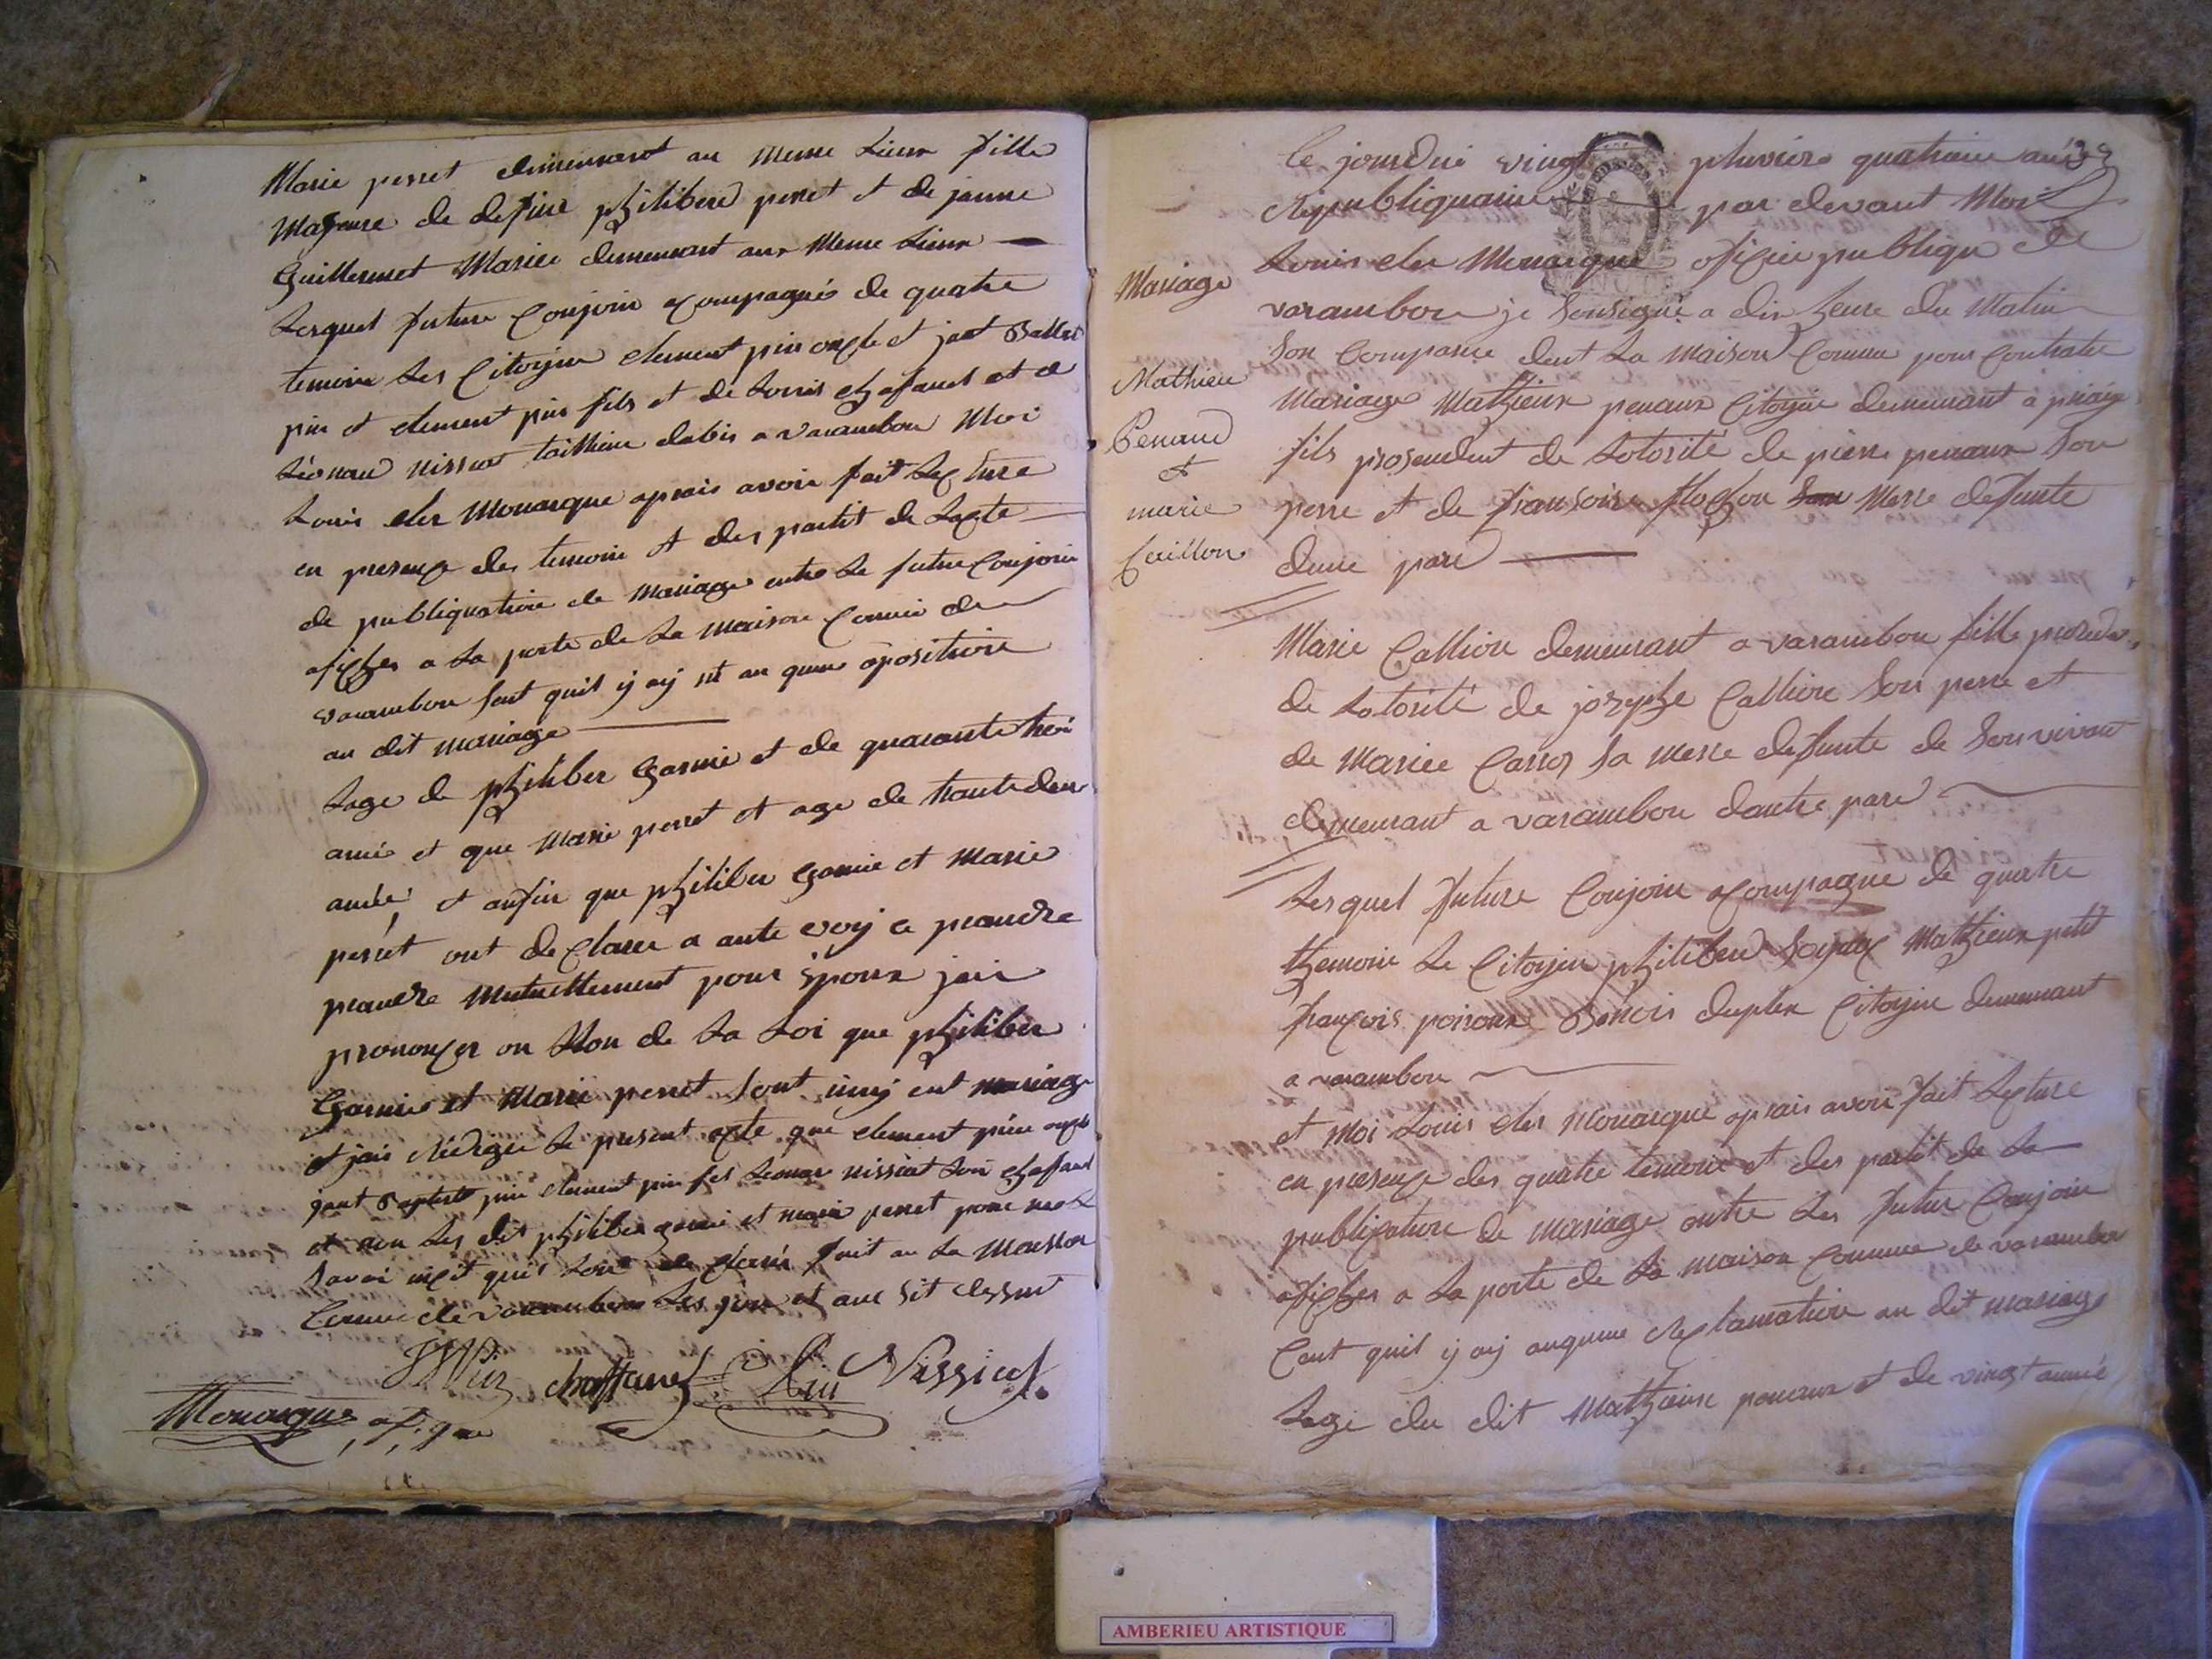 Marie perret demeurant au meme Lieux fille
Majeure de defunt philibere perret et de janne
Guillermet Mariee demeurant aux Meme Lieux
Lesquel future Conjoin acompagnés de quatre
temoin Les Citoyin clement pin oncle et jant Batis
pin et clement pin fils et de Louis chafanel et de
Léonard nissiot taillieur dabis a varambon Moi
Louis der Monarque aprais avoir fait Lecture
en presence des temoin et des partit de Lacte
de publiquatione de Mariage entre Le future Conjoin
aficher a La porte de La maison Comune de
varambon sent quil y aÿ ut au qune opositione
au dit mariage
Lage de philiber Garnié et de quarante troi
anné et que Marie perret et age de trante deux
année et anfin que philiber Garnie et Marie
perret ont declaree a aute voÿ ce prandre
prandre Mutuellement pour Epoux jai
prononcer on Non de La Loi que philiber
Garnie et Marie perret sont uny ent mariage
et jai Rédigée Le present acte que clement pin oncle
jant Baptiste pin clement pin fils Leonar nissiot Loui chafanel
et non Les dit philiber garnié et marie perret pour ne
savoir ecrit quis sont de clarés fait an La Maison
Comune de varambon Les jour et ans sit dessus
Pin chaffanel Pin Nissiot
Monarque ofi
Mariage
Mathieu
Penaud
et
marie
Caillon
le jourdui vingt pluviose quatrieme
Republiquaine par devant Moi
Louis der Monarque oficie publique de
varambon je Sousigné a dix heure du Matin
Son Comparue dent La maison Comune pour Contrater
Mariage Mathieux penaux Citoyin demeurant a
fils prosendent de Lotorité de pierre penaux Son
perre et de fransoise flochon Merre defunte
dune pare
Marie Callion demeurant a varambon fille
de Lotorité de josephe Callion Son perre et
de Mariee Carros Sa Merre defunte de Son vivant
demeurant a varambon dautre pare
Lesquel future Conjoin acompagne de quatre
themoin Le Citoyin philibere Mathieux petit
françois poisoux Benois duplex Citoyin demeurant
a varambon
et Moi Louis der Monarque aprais avoir fait Lecture
en presence des quatre temoin et des partit de La
publication de mariage entre Les futur Conjoin
aficher a La porte de La maison Comune de varambon
Cent quil y aÿ auqune Reclamation au dit mariage
Lage du dit Mathieux penaux et de vingt année
AMBERIEU ARTISTIQUE